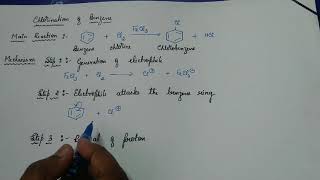 Chlorination of Benzene
Main Reaction :- + Cl₂ FeCl₃ Cl + HCl
Benzene chlorine Chlorobenzene
Mechanism Step 1 :- Generation of electrophile
FeCl₃ + Cl₂ → Cl⊕ + FeCl₄⊖
Step 2 :- Electrophile attacks the benzene ring
+ Cl⊕
Step 3 :- of proton